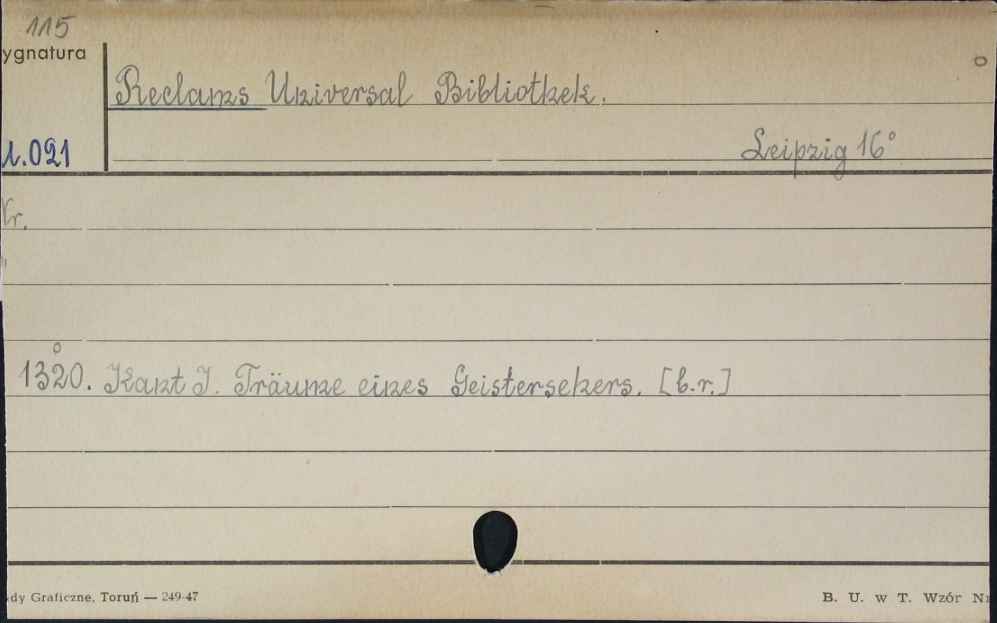 115
ygnatura
Reclams Universal Bibliothek.
1.021
Leipzig 16°
Nr.
1320. Kant I. Träume eines Geistersehers. [b.r.]
dy Graficzne, Toruń — 249-47
B. U. w T. Wzór Nr